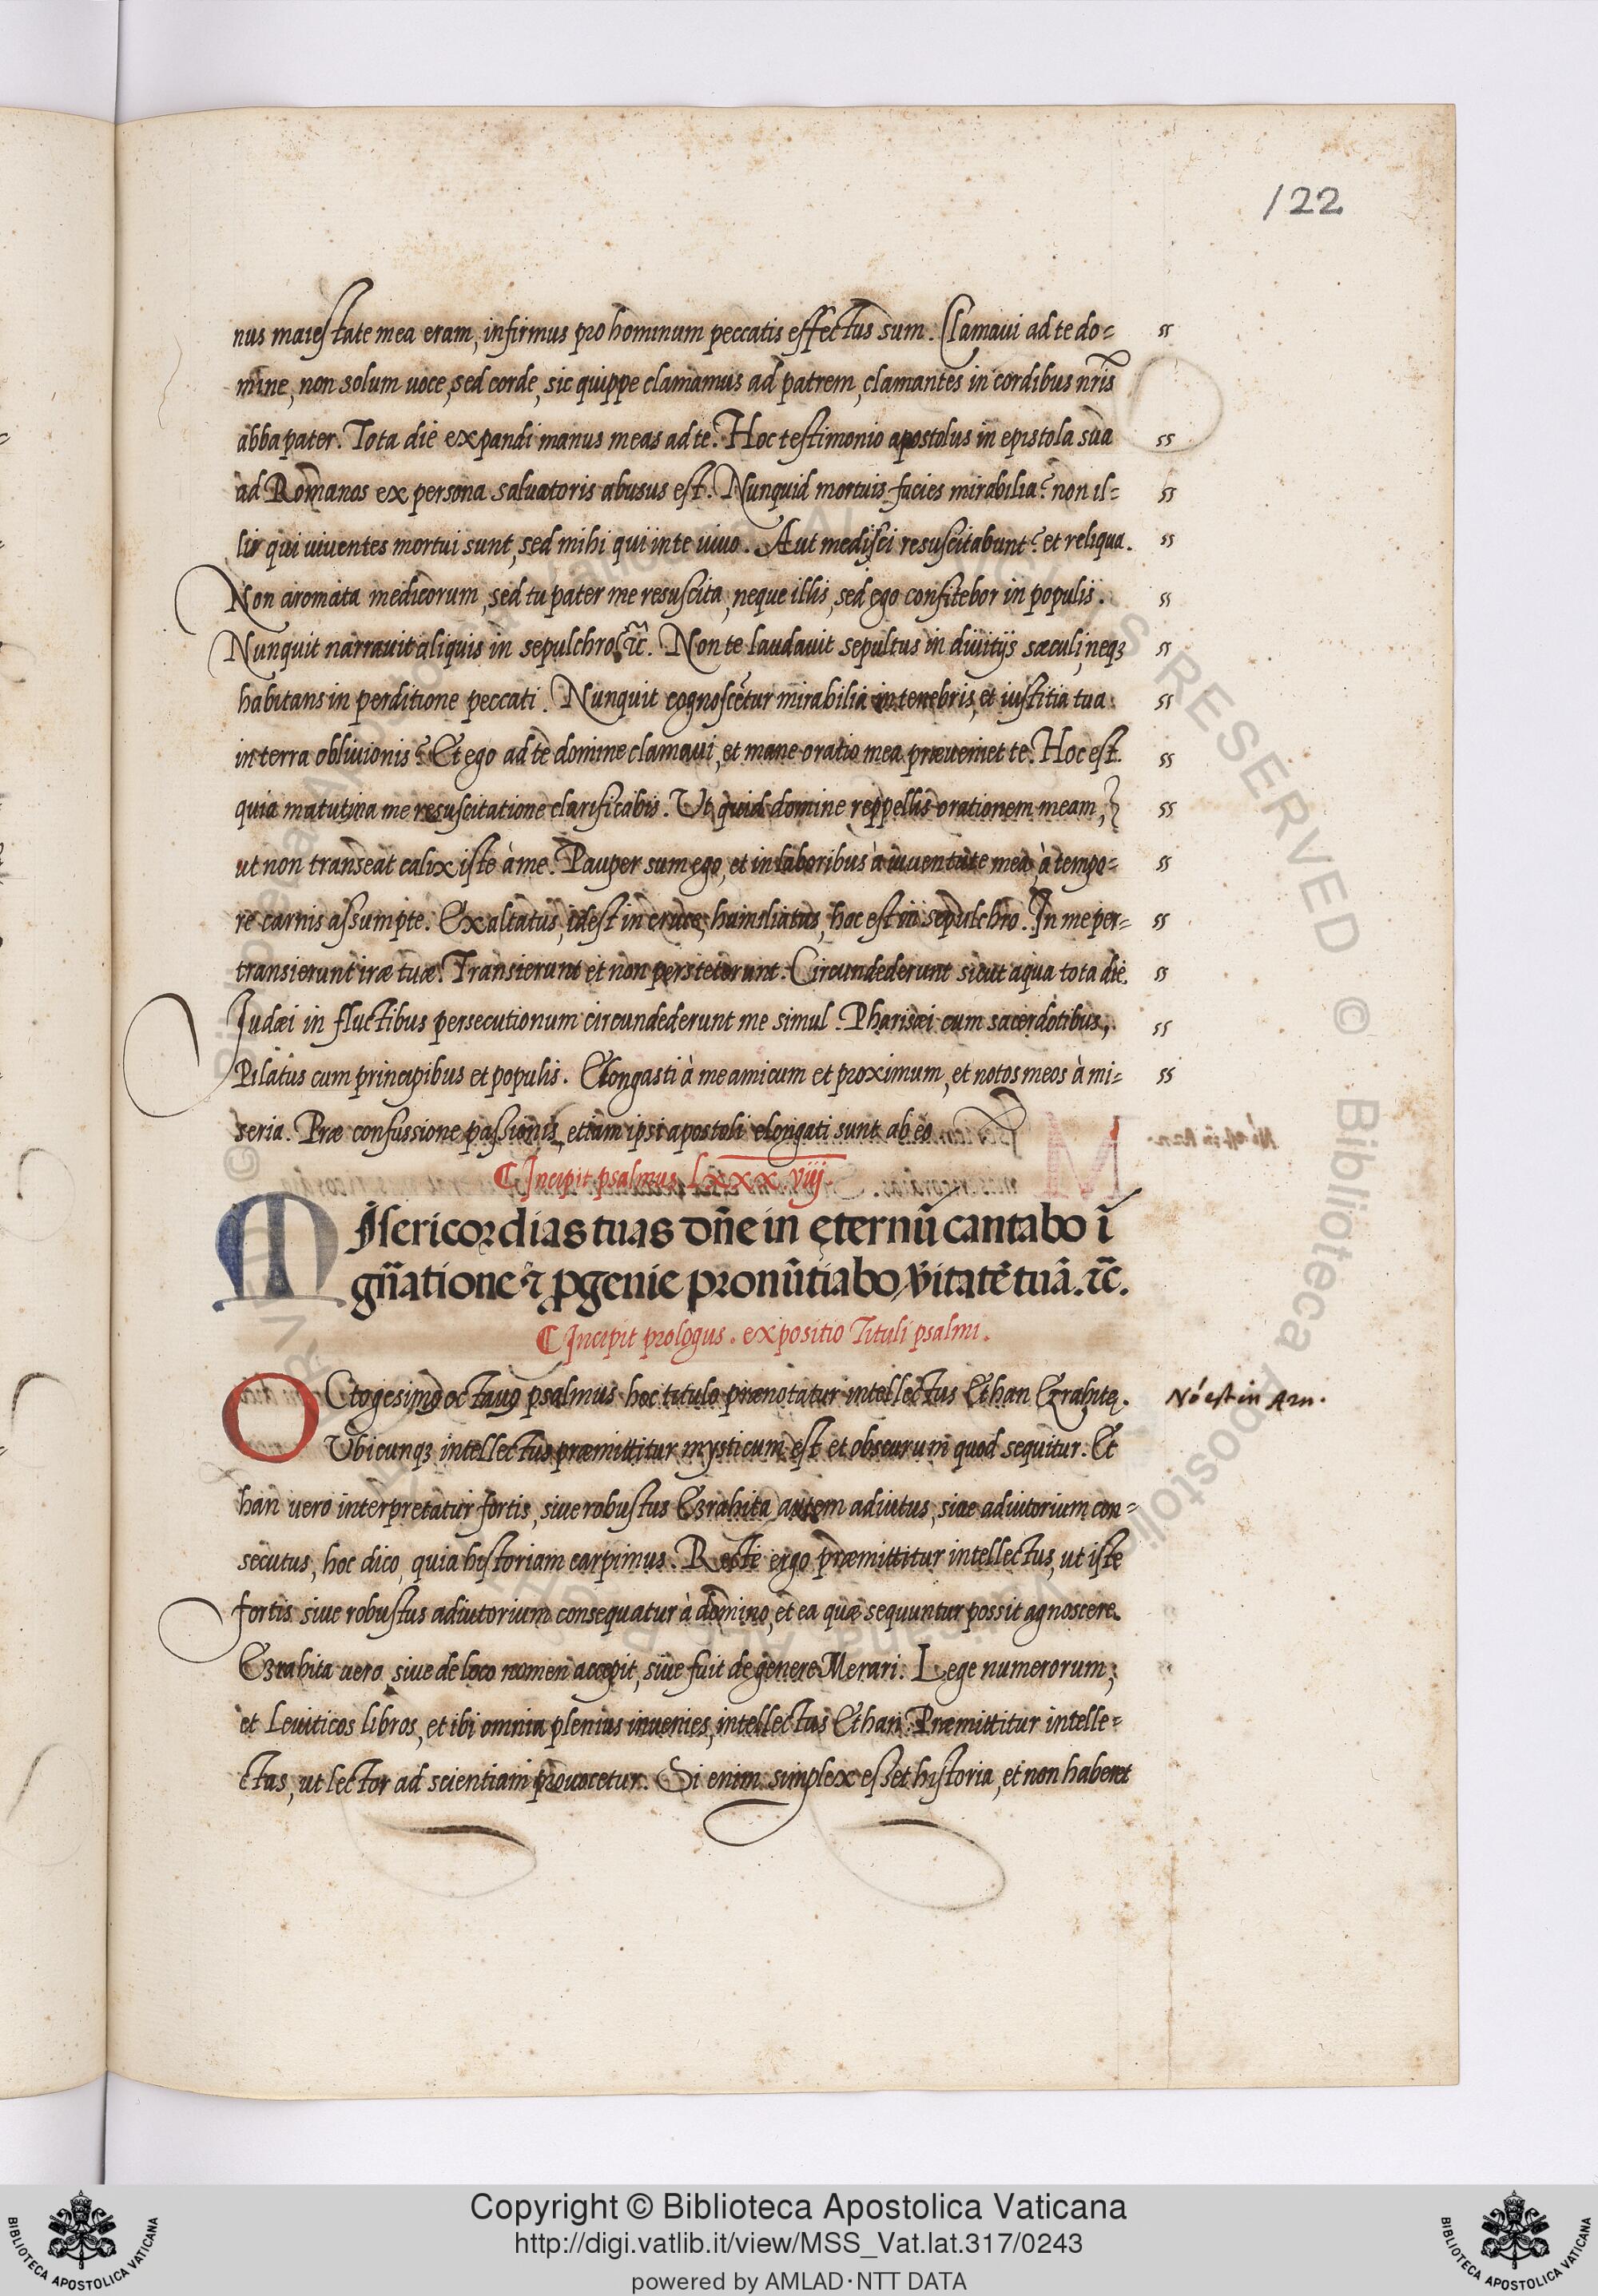 122
nus maiestate mea eram, infirmus pro hominum peccatis effectus sum. Clamaui ad te do= ss
mine, non solum uoce, sed corde, sic quippe clamamus ad patrem, clamantes in cordibus nr̃is
abba pater. Tota die expandi manus meas ad te. Hoc testimonio apostolus in epistola sua ss
ad Romanos ex persona saluatoris abusus est. Nunquid mortuis facies mirabilia? non il= ss
lis qui uiuentes mortui sunt, sed mihi qui in te uiuo. Aut medisci resuscitabunt? et reliqua. ss
Non aromata medicorum, sed tu pater me resuscita, neque illis, sed ego confitebor in populis. ss
Nunquit narrauit aliquis in sepulchro, &c̃. Non te laudauit sepultus in diuitijs sæculi, neqȝ ss
habitans in perditione peccati. Nunquit cognoscẽtur mirabilia in tenebris, et iustitia tua ss
in terra obliuionis? Et ego ad te domine clamaui, et mane oratio mea præueniet te. Hoc est ss
quia matutina me resuscitatione clarificabis. Ut quid domine reppellis orationem meam, ss
ut non transeat calix iste à me. Pauper sum ego, et in laboribus à iuuentute mea, à tempo= ss
re carnis assumpte. Exaltatus, idest in cruce, humiliatus, hoc est in sepulchro. In me per= ss
transierunt iræ tuæ. Transierunt et non perstiterunt. Circundederunt sicut aqua tota die. ss
Iudæi in fluctibus persecutionum circundederunt me simul. Pharisæi cum sacerdotibus, ss
Pilatus cum principibus et populis. Elongasti à me amicum et proximum, et notos meos à mi= ss
seria. Præ confussione passionis, etiam ipsi apostoli elongati sunt ab eo
¶ Incipit psalmus Lxxx viij.
Misericordias tuas dñe in ęternũ cantabo ĩ
gñatione ⁊ ꝓgenie pronũtiabo ṽitatẽ tuã. ⁊c̃.
¶ Incipit prologus. expositio Tituli psalmi.
OCtogesimo octauo psalmus hoc titulo prænotatur intellectus Ethan Ezrahitę. Nõ est in Arn.
Vbicunqȝ intellectus præmittitur mysticum est et obscurum quod sequitur. Et
han uero interpretatur fortis, siue robustus Ezrahita autem adiutus, siue adiutorium con=
secutus, hoc dico, quia historiam carpimus. Recte ergo præmittitur intellectus, ut iste
fortis siue robustus adiutorium consequatur à domino, et ea quæ sequuntur possit agnoscere.
Ezrahita uero, siue de loco nomen accepit, siue fuit de genere Merari. Lege numerorum,
et Leuiticos libros, et ibi omnia plenius inuenies, intellectus Ethan. Præmittitur intelle=
ctus, ut lector ad scientiam prouocetur. Si enim simplex esset historia, et non haberet
Copyright © Biblioteca Apostolica Vaticana
http://digi.vatlib.it/view/MSS_Vat.lat.317/0243
powered by AMLAD·NTT DATA
BIBLIOTECA APOSTOLICA VATICANA
BIBLIOTECA APOSTOLICA VATICANA